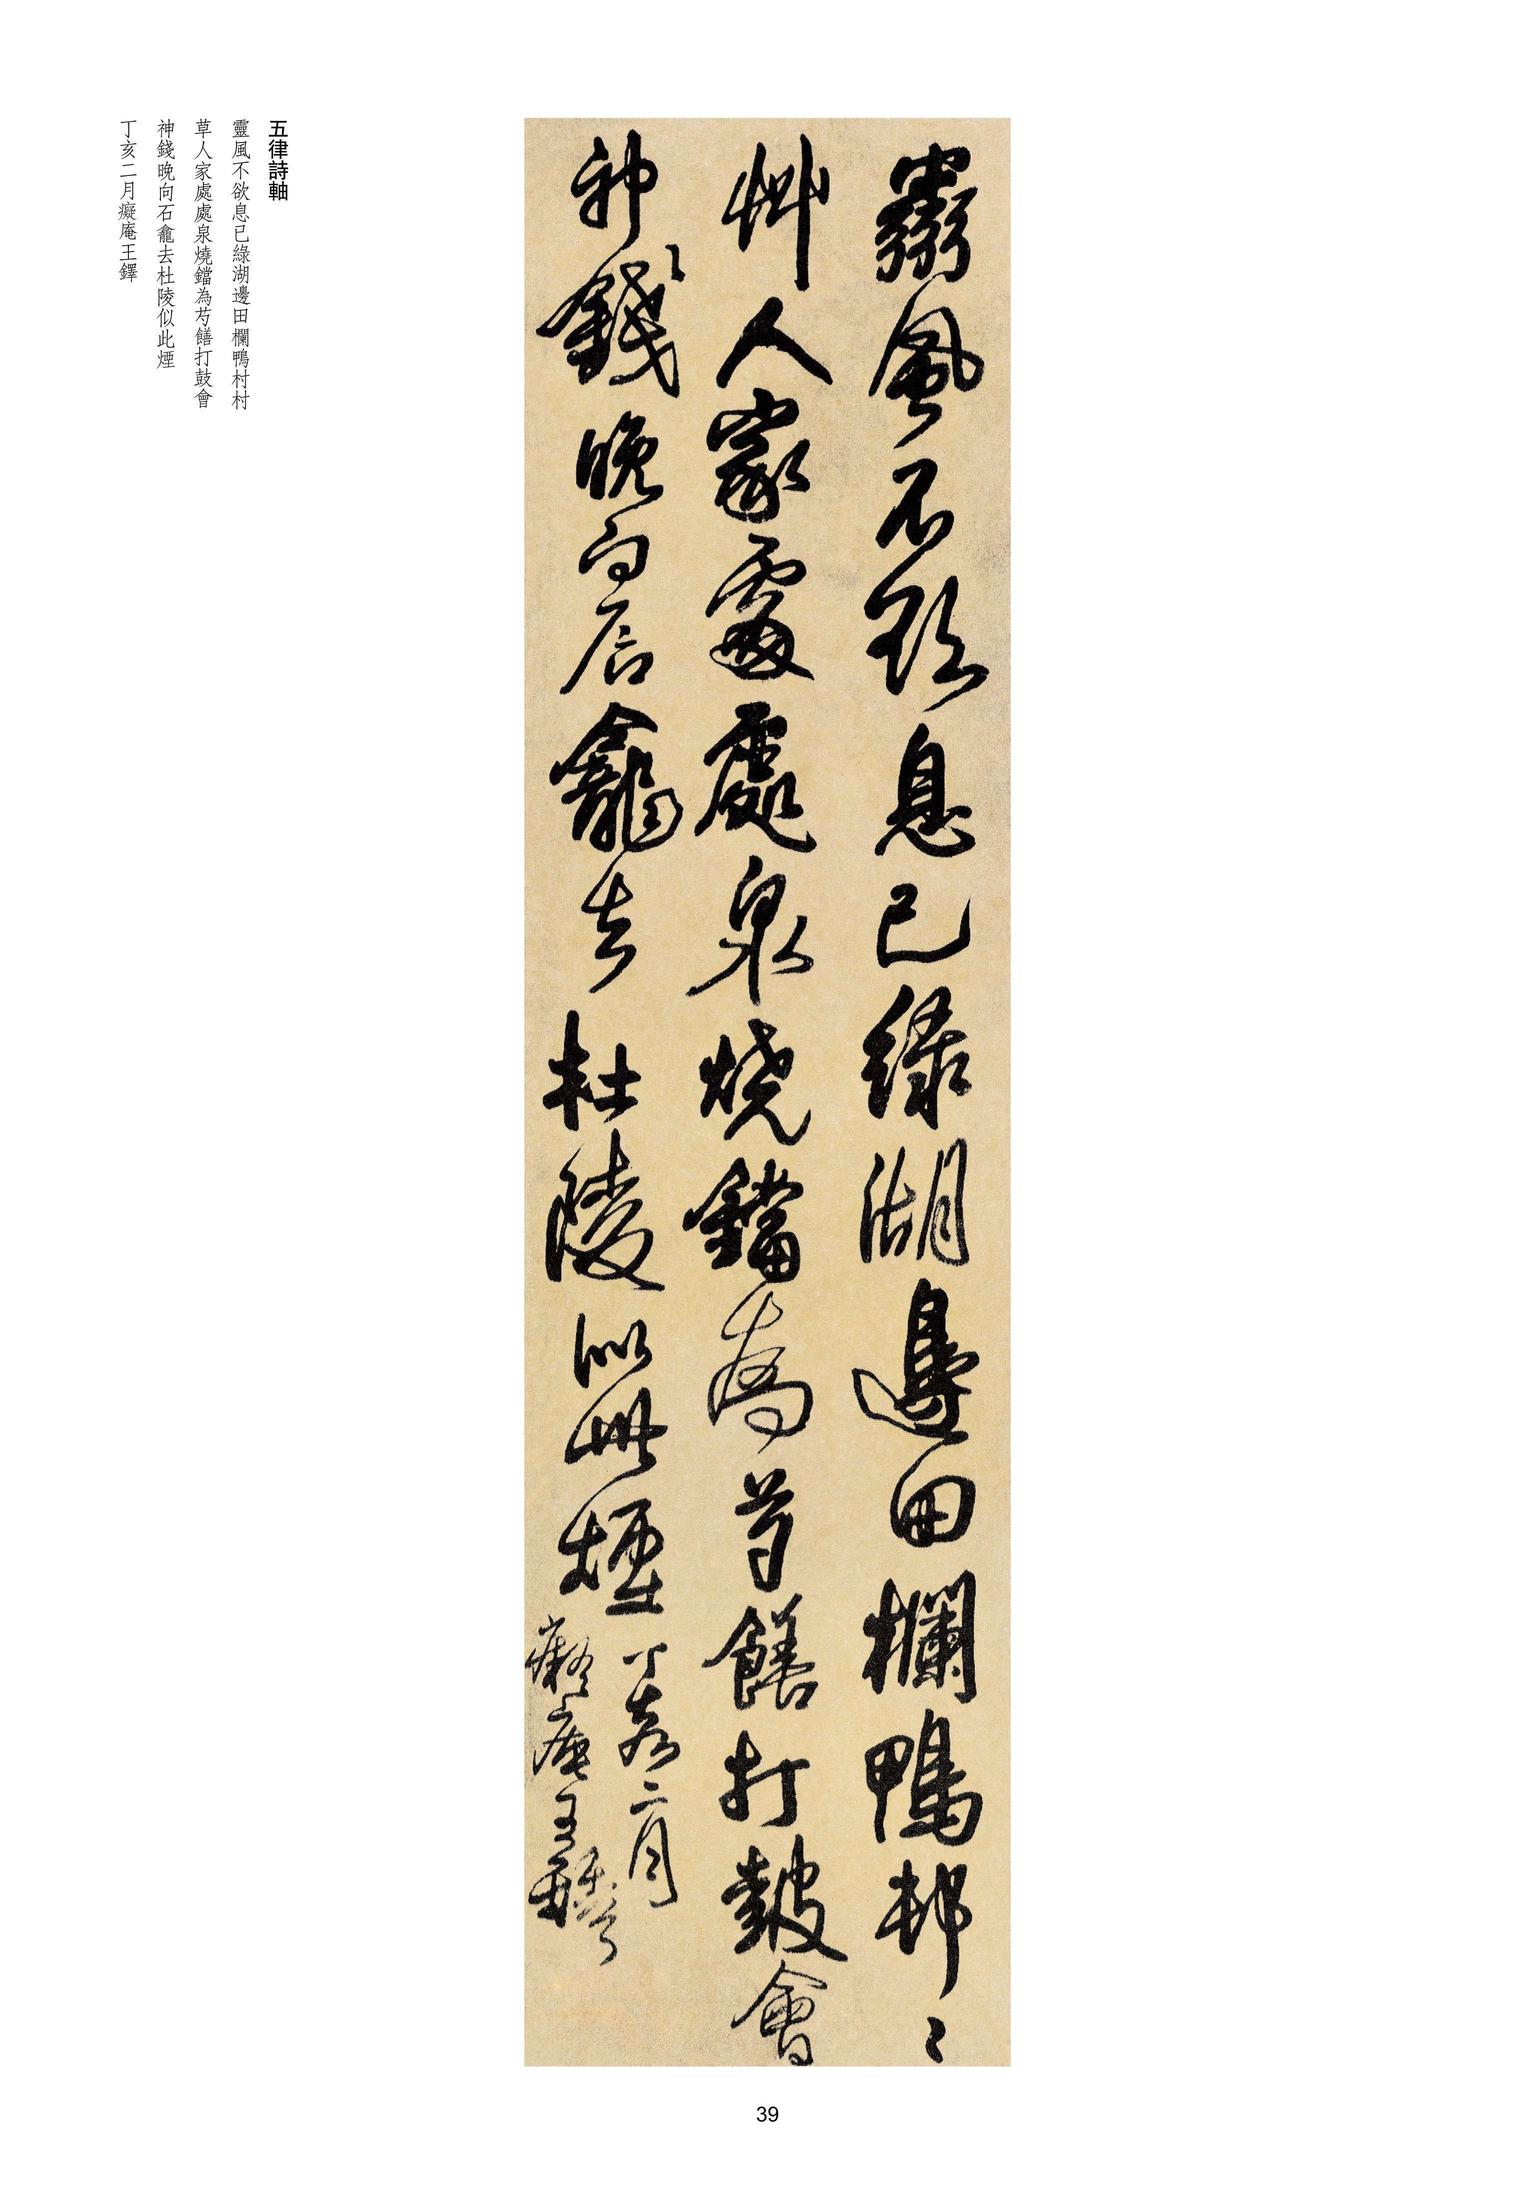 靈風不欲息已綠湖邊田欄鴨邨〻
艸人家處處泉燒鐺為芍饍打鼓會
神錢晚向石龕去杜陵似此煙
丁亥二月
癡庵王鐸
五律詩軸
靈風不欲息已綠湖邊田欄鴨村村
草人家處處泉燒鐺為芍饍打鼓會
神錢晚向石龕去杜陵似此煙
丁亥二月癡庵王鐸
39